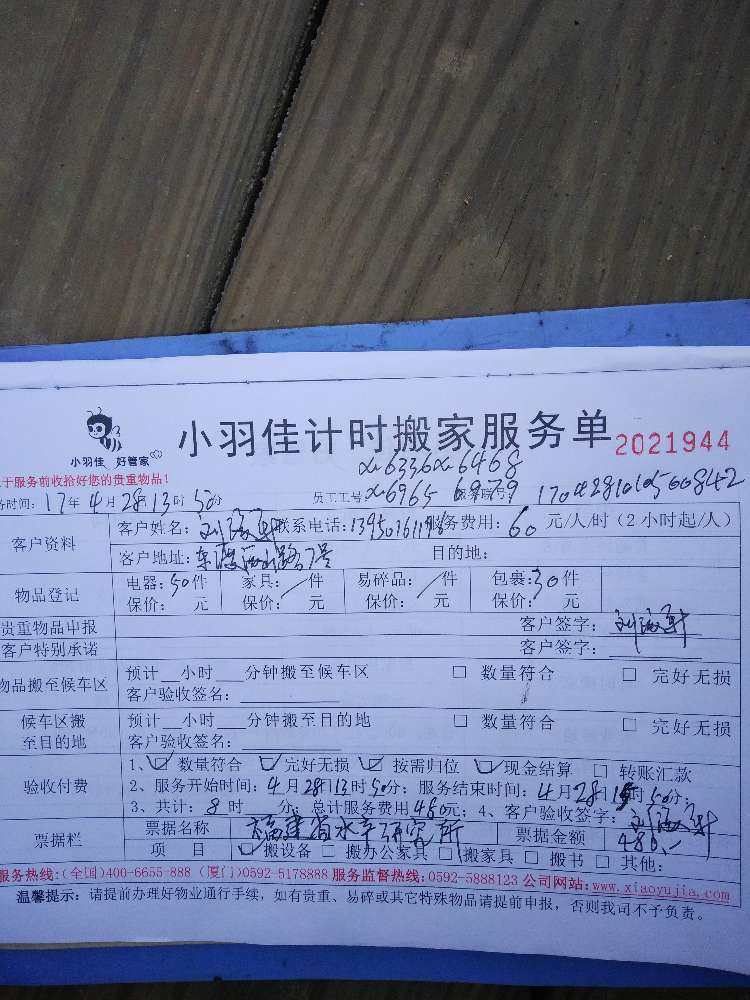 小羽佳 好管家
小羽佳计时搬家服务单 2021944
于服务前收拾好您的贵重物品！
务时间：17年4月28日13时50分 员工工号 6336 6468
6965 6979 1704281010500842
客户资料 客户姓名： 联系电话： 服务费用：60元/人/时（2小时起/人）
客户地址： 目的地：
物品登记 电器：50件 家具：/件 易碎品：/件 包裹：30件
保价： 元 保价： 元 保价： 元 保价： 元
贵重物品申报 客户签字：
客户特别承诺 客户签字：
物品搬至候车区 预计__小时__分钟搬至候车区 □ 数量符合 □ 完好无损
客户验收签名：
候车区搬至目的地 预计__小时__分钟搬至目的地 □ 数量符合 □ 完好无损
客户验收签名：
验收付费 1、☑ 数量符合 ☑ 完好无损 ☑ 按需归位 ☑ 现金结算 □ 转账汇款
2、服务开始时间：4月28日13时50分；服务结束时间：4月28日15时50分；
3、共计：8时 分；总计服务费用480元；4、客户验收签字：
票据栏 票据名称 福建省水产研究所 票据金额 480.-
项 目 ☑ 搬设备 □ 搬办公家具 □ 搬家具 □ 搬书 □ 其他：
服务热线：(全国)400-6655-888 (厦门)0592-5178888 服务监督热线：0592-5888123 公司网站：www.xiaoyujia.com
温馨提示：请提前办理好物业通行手续，如有贵重、易碎或其它特殊物品请提前申报，否则我司不予负责。